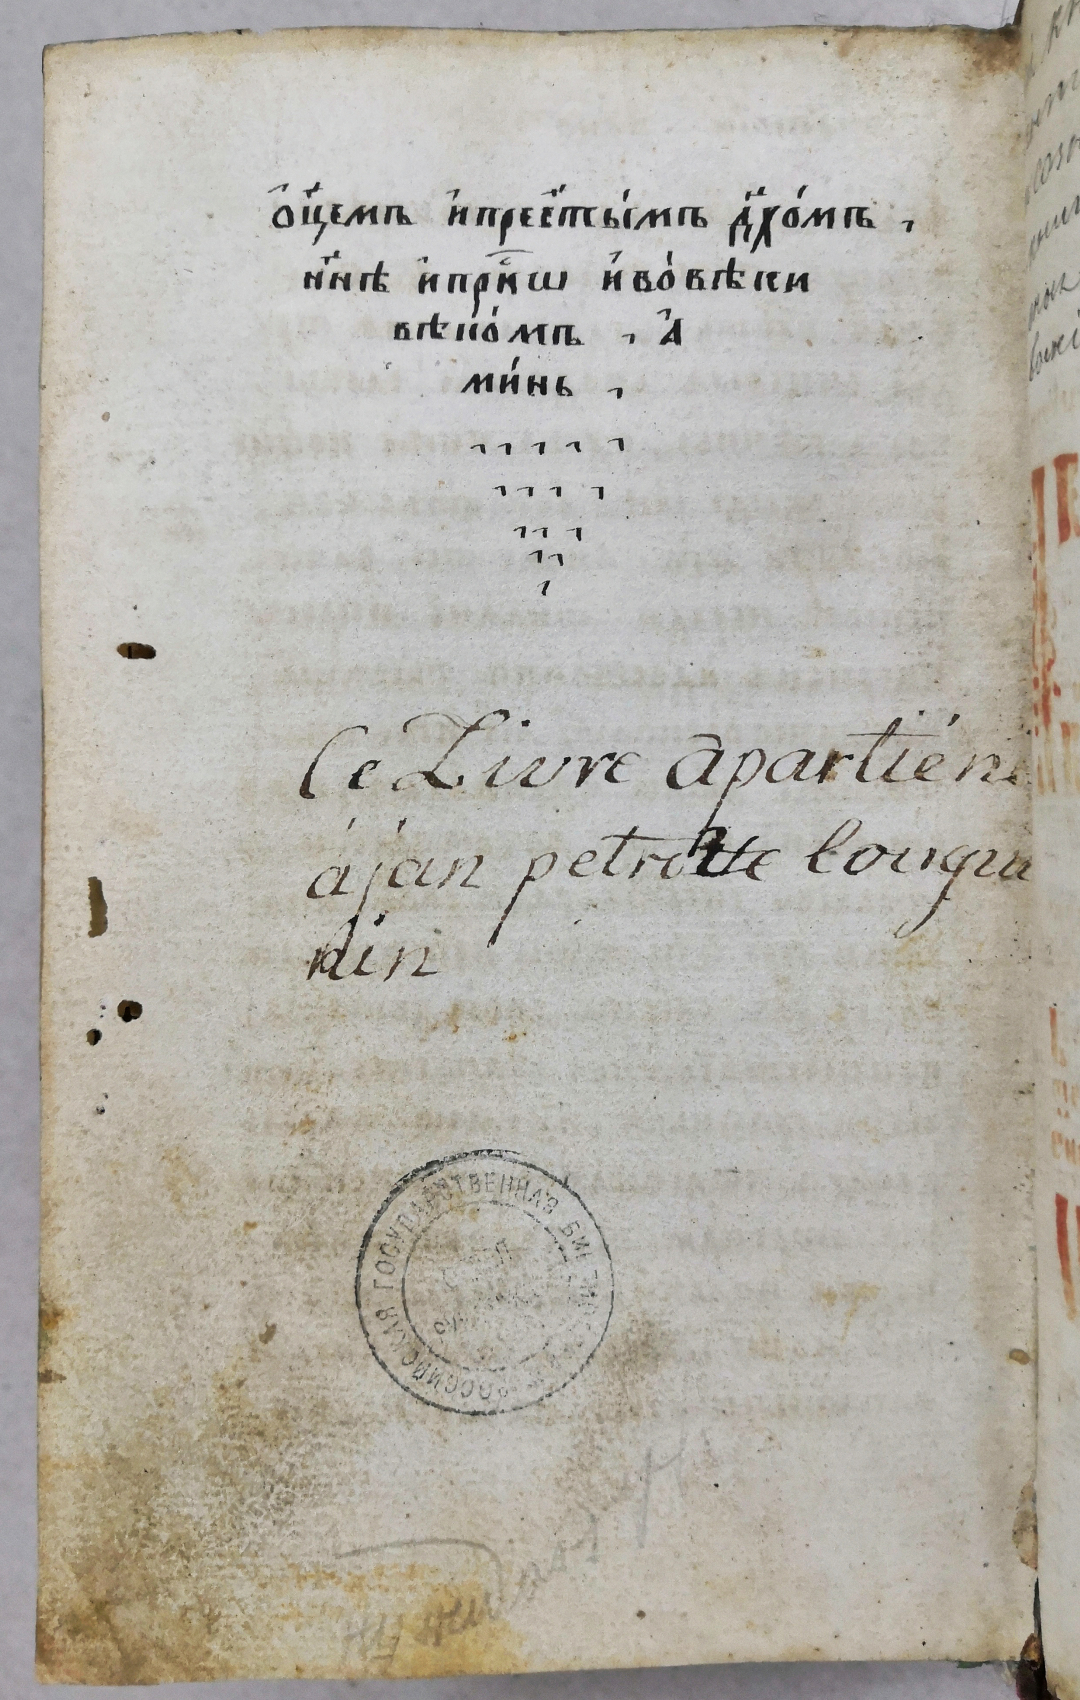 ѻц҃емъ и҆прес҃ты́мъ дх҃о́мъ ,
нн҃ѣ и҆при́снѡ и҆во́вѣки
вѣко́мъ , А҆
ми́нь ,
Ce Livre apartién
á jan petrotte lougui
nin
РОССИЙСКАЯ ГОСУДАРСТВЕННАЯ БИБЛИОТЕКА